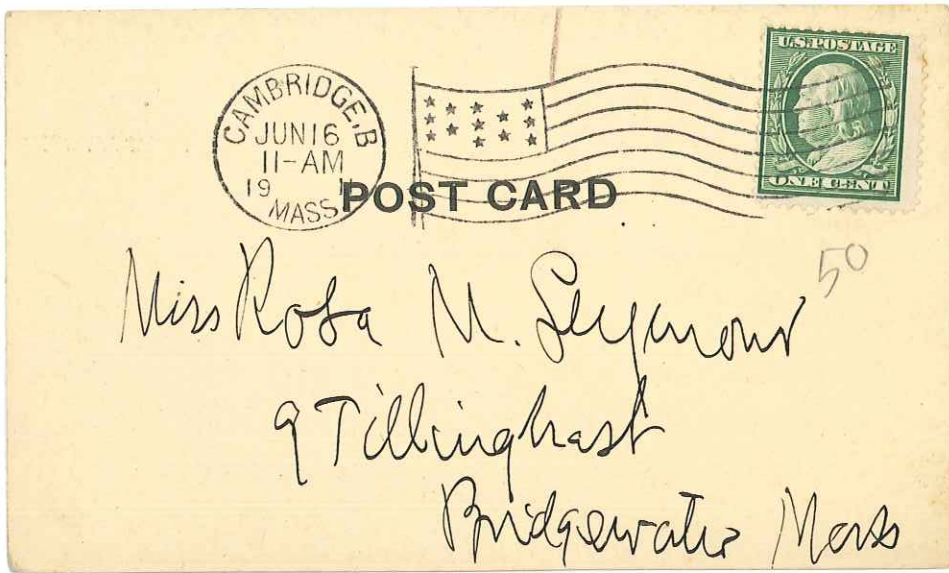 CAMBRIDGE, B
JUN 16
11-AM
19
MASS
U.S. POSTAGE
ONE CENT
POST CARD
50
Miss Rosa M. Seymour
9 Tillinghast
Bridgewater Mass